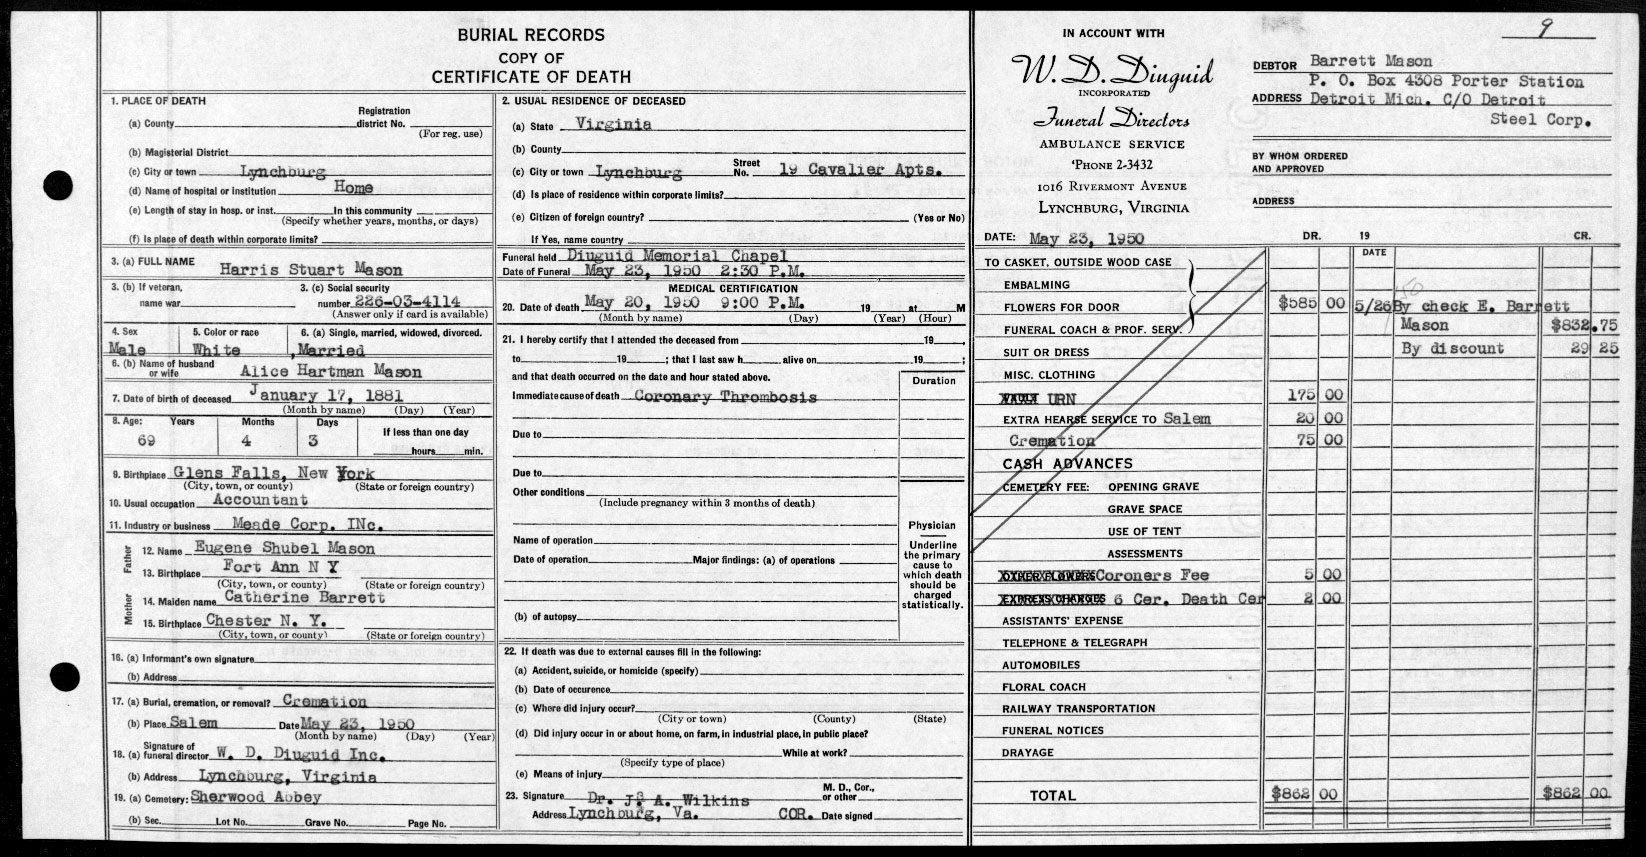 BURIAL RECORDS
COPY OF
CERTIFICATE OF DEATH
1. PLACE OF DEATH
(a) County Registration district No. (For reg. use)
(b) Magisterial District
(c) City or town Lynchburg
(d) Name of hospital or institution Home
(e) Length of stay in hosp. or inst. In this community
(Specify whether years, months, or days)
(f) Is place of death within corporate limits?
3. (a) FULL NAME Harris Stuart Mason
3. (b) If veteran, name war
3. (c) Social security number 226-03-4114
(Answer only if card is available)
4. Sex Male
5. Color or race White
6. (a) Single, married, widowed, divorced. Married
6. (b) Name of husband or wife Alice Hartman Mason
7. Date of birth of deceased January 17, 1881
(Month by name) (Day) (Year)
8. Age: Years Months Days If less than one day
69 4 3 hours min.
9. Birthplace Glens Falls, New York
(City, town, or county) (State or foreign country)
10. Usual occupation Accountant
11. Industry or business Meade Corp. INc.
Father
12. Name Eugene Shubel Mason
13. Birthplace Fort Ann N Y
(City, town, or county) (State or foreign country)
Mother
14. Maiden name Catherine Barrett
15. Birthplace Chester N. Y.
(City, town, or county) (State or foreign country)
16. (a) Informant's own signature
(b) Address
17. (a) Burial, cremation, or removal? Cremation
(b) Place Salem Date May 23, 1950
(Month by name) (Day) (Year)
18. (a) Signature of funeral director W. D. Diuguid Inc.
(b) Address Lynchburg, Virginia
19. (a) Cemetery: Sherwood Abbey
(b) Sec. Lot No. Grave No. Page No.
2. USUAL RESIDENCE OF DECEASED
(a) State Virginia
(b) County
(c) City or town Lynchburg Street No. 19 Cavalier Apts.
(d) Is place of residence within corporate limits?
(e) Citizen of foreign country? (Yes or No)
If Yes, name country
Funeral held Diuguid Memorial Chapel
Date of Funeral May 23, 1950 2:30 P.M.
MEDICAL CERTIFICATION
20. Date of death May 20, 1950 9:00 P.M. 19 at M
(Month by name) (Day) (Year) (Hour)
21. I hereby certify that I attended the deceased from 19 ,
to 19 ; that I last saw h alive on 19 ;
and that death occurred on the date and hour stated above.
Duration
Immediate cause of death Coronary Thrombosis
Due to
Due to
Other conditions
(Include pregnancy within 3 months of death)
Name of operation
Date of operation Major findings: (a) of operations
(b) of autopsy
Physician
Underline
the primary
cause to
which death
should be
charged
statistically.
22. If death was due to external causes fill in the following:
(a) Accident, suicide, or homicide (specify)
(b) Date of occurence
(c) Where did injury occur?
(City or town) (County) (State)
(d) Did injury occur in or about home, on farm, in industrial place, in public place?
While at work?
(Specify type of place)
(e) Means of injury
23. Signature Dr. J. A. Wilkins M. D., Cor., or other
Address Lynchburg, Va. COR. Date signed
IN ACCOUNT WITH
W. D. Diuguid
INCORPORATED
Funeral Directors
AMBULANCE SERVICE
'PHONE 2-3432
1016 RIVERMONT AVENUE
LYNCHBURG, VIRGINIA
9
DEBTOR Barrett Mason
P. O. Box 4308 Porter Station
ADDRESS Detroit Mich. C/O Detroit
Steel Corp.
BY WHOM ORDERED
AND APPROVED
ADDRESS
DATE: May 23, 1950 DR. 19 CR.
DATE
TO CASKET, OUTSIDE WOOD CASE
EMBALMING
FLOWERS FOR DOOR $585 00 5/26 By check E. Barrett
FUNERAL COACH & PROF. SERV. Mason $832.75
SUIT OR DRESS By discount 29 25
MISC. CLOTHING
VAULT URN 175 00
EXTRA HEARSE SERVICE TO Salem 20 00
Cremation 75 00
CASH ADVANCES
CEMETERY FEE: OPENING GRAVE
GRAVE SPACE
USE OF TENT
ASSESSMENTS
OTHER FLOWERS Coroners Fee 5 00
EXPRESS CHARGES 6 Cer. Death Cer 2 00
ASSISTANTS' EXPENSE
TELEPHONE & TELEGRAPH
AUTOMOBILES
FLORAL COACH
RAILWAY TRANSPORTATION
FUNERAL NOTICES
DRAYAGE
TOTAL $862 00 $862 00